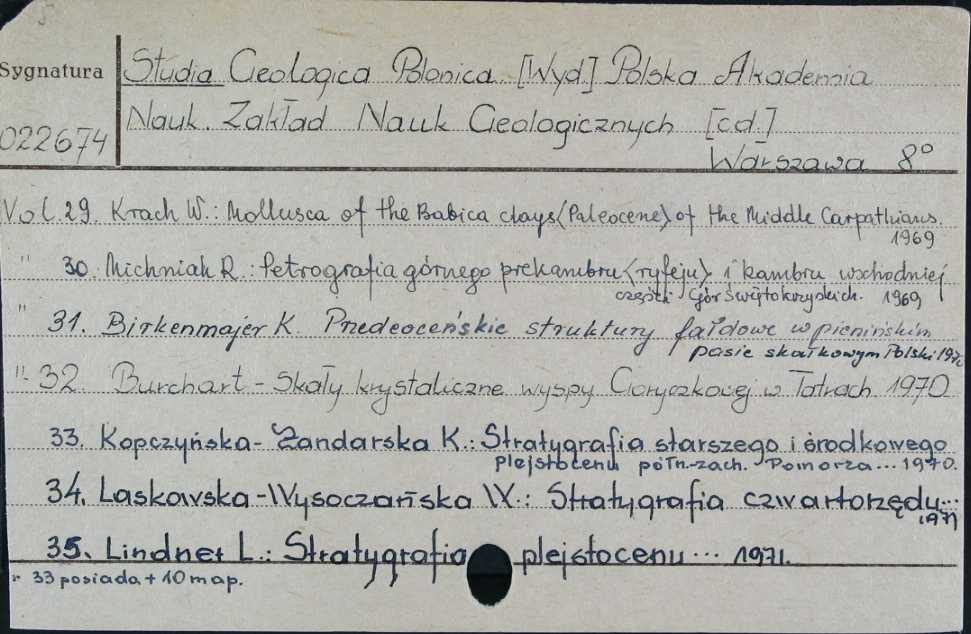 Sygnatura
022674
Studia Geologica Polonica. [Wyd.] Polska Akademia
Nauk. Zakład Nauk Geologicznych [cd.]
Warszawa 8°
Vol. 29. Krach W.: Mollusca of the Babica clays (Paleocene) of the Middle Carpathians.
1969
" 30. Michniak R.: Petrografia górnego prekambru (ryfeju) i kambru wschodniej
części Gór Świętokrzyskich. 1969
" 31. Birkenmajer K. Przedeoceńskie struktury fałdowe w pienińskim
pasie skałkowym Polski 1970
" 32. Burchart - Skały krystaliczne wyspy Goryczkowej w Tatrach 1970
33. Kopczyńska-Żandarska K.: Stratygrafia starszego i środkowego
plejstocenu półn.-zach. Pomorza... 1970.
34. Laskowska-Wysoczańska W.: Stratygrafia czwartorzędu...
1971
35. Lindner L.: Stratygrafia plejstocenu ... 1971.
" 33 posiada + 10 map.